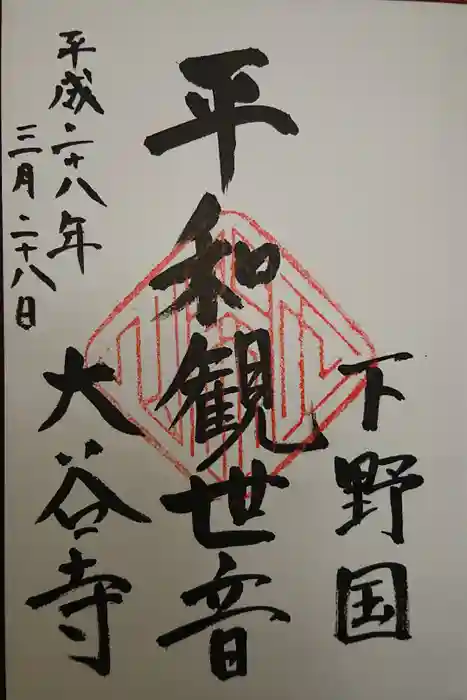 下野国
平和観世音
大谷寺
平成二十八年
三月二十八日